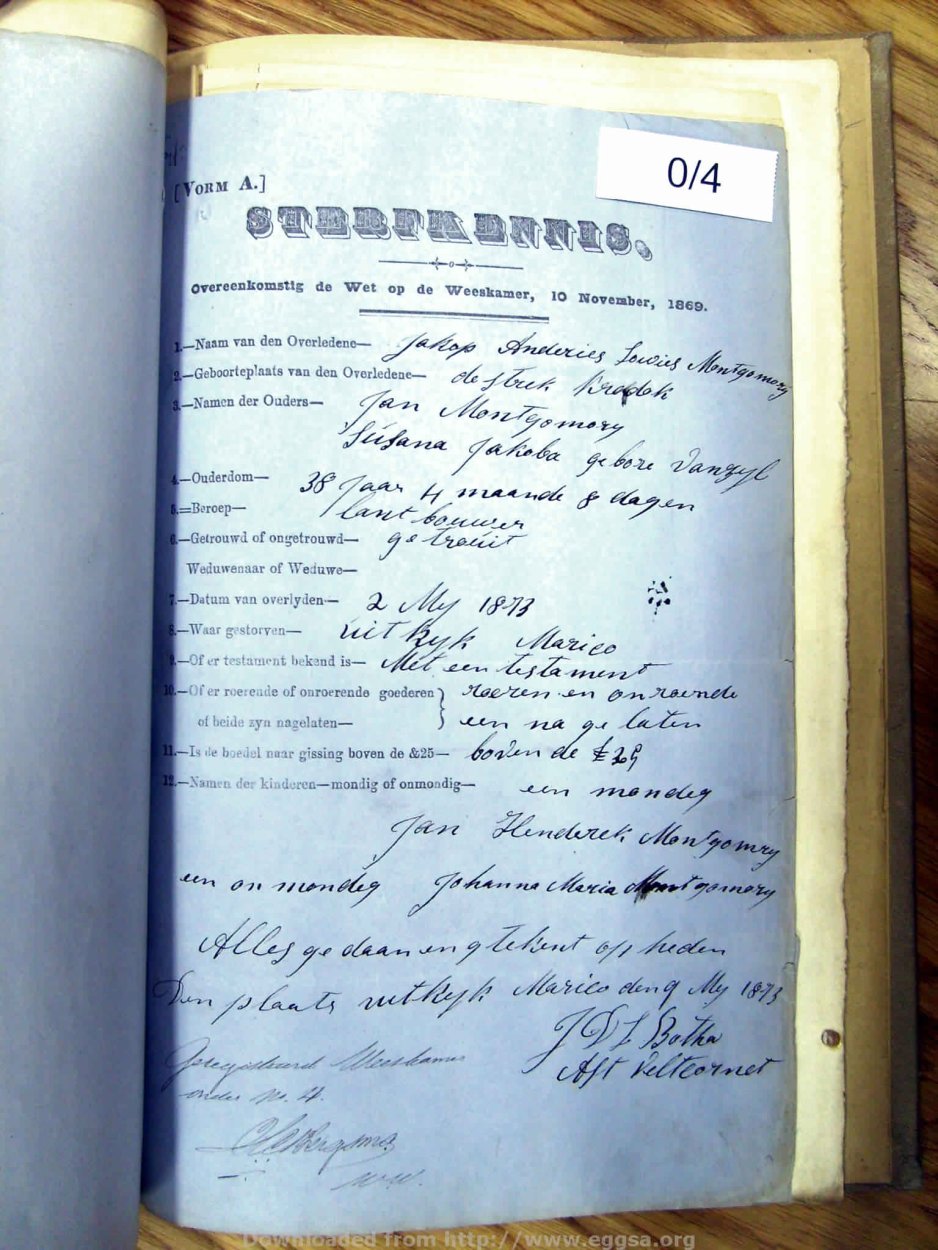 0/4
[VORM A.]
STERFKENNIS.
Overeenkomstig de Wet op de Weeskamer, 10 November, 1869.
1.—Naam van den Overledene— Jakop Anderies Lowies Montgomory
2.—Geboorteplaats van den Overledene— de streek
3.—Namen der Ouders— Jan Montgomory
Susana Jakoba gebore Vanzyl
4.—Ouderdom— 38 Jaar 4 maande 8 dagen
5.=Beroep— lantbouwer
6.—Getrouwd of ongetrouwd— getrouit
Weduwenaar of Weduwe—
7.—Datum van overlyden— 2 My 1873
8.—Waar gestorven— uitkyk Marico
9.—Of er testament bekend is— Met een testament
10.—Of er roerende of onroerende goederen} roeren en onroerende
of beide zyn nagelaten— een na ge laten
11.—Is de boedel naar gissing boven de £25— boven de
12.—Namen der kinderen—mondig of onmondig— een mondeg
Jan Henderek Montgomry
een on mondeg Johanna Maria Montgomory
Alles gedaan en gtekent op heden
Den plaats uitkyk Marico den 9 My 1873
Botha
Aft Veltcornet
Geregistreerd Weeskamer
onder No. 4.
Downloaded from http://www.eggsa.org